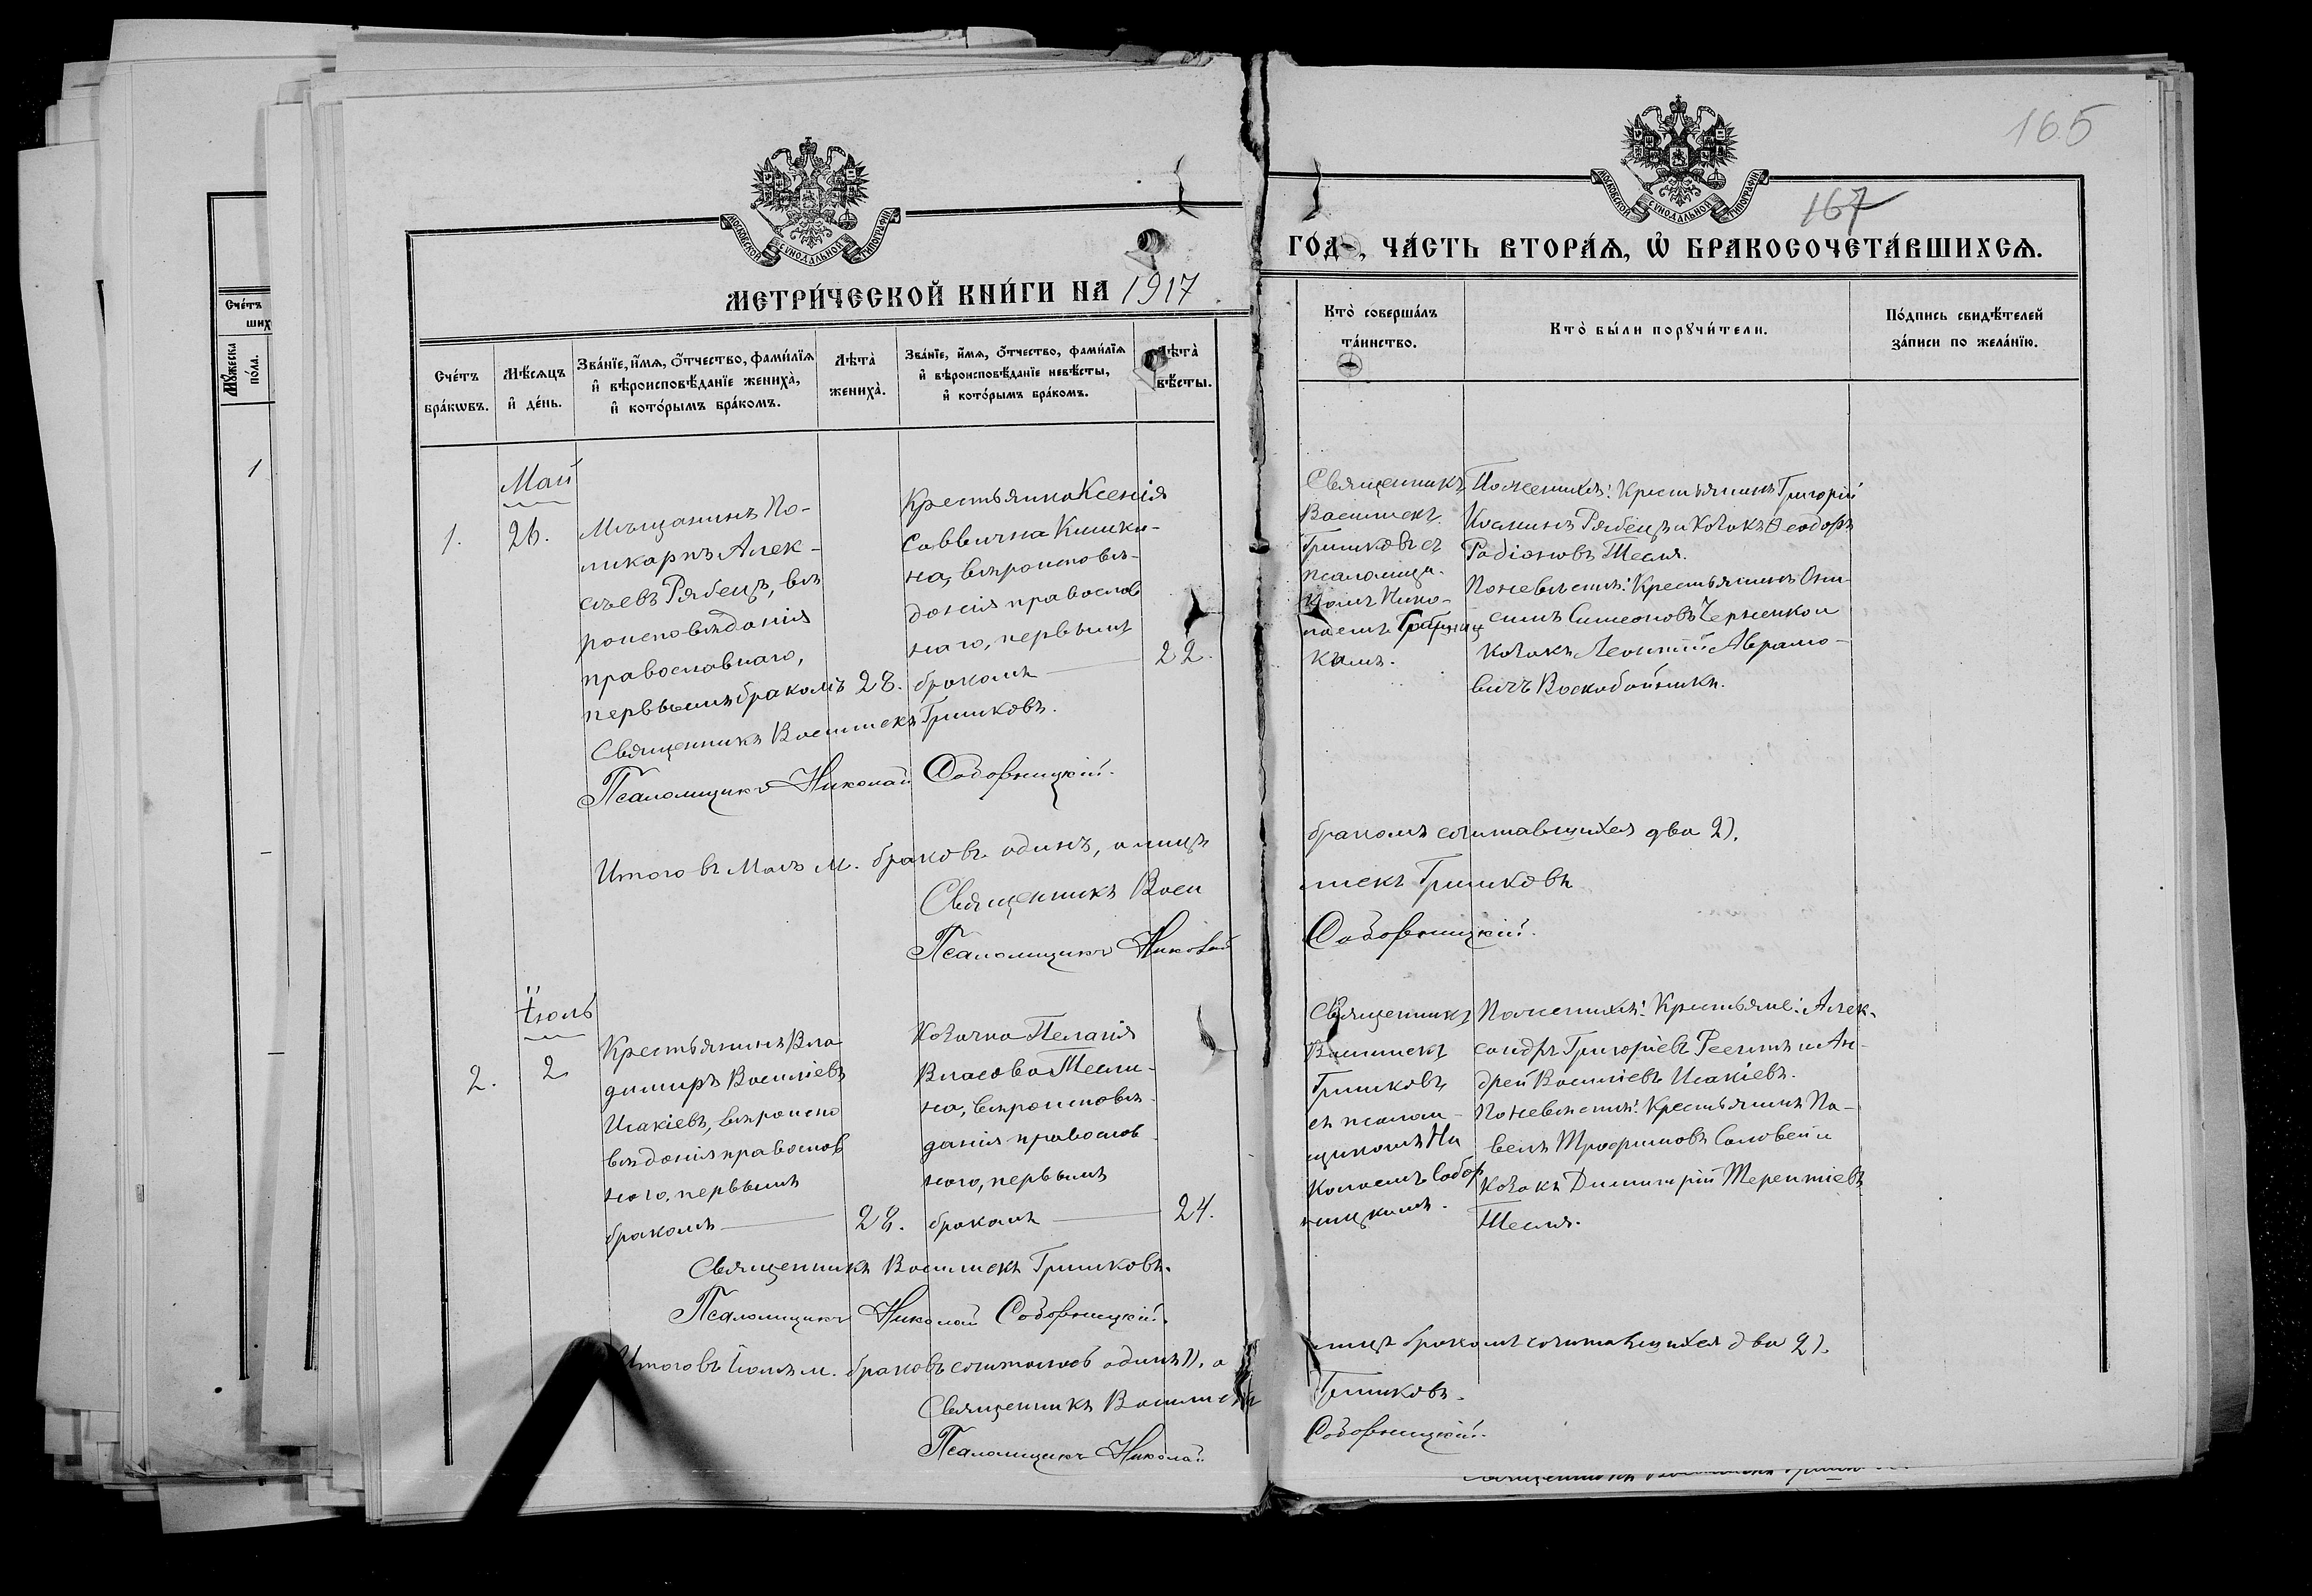 165
167
МОСКОВСКОЙ СѴНОДАЛЬНОЙ ТИПОГРАФІИ
МОСКОВСКОЙ СѴНОДАЛЬНОЙ ТИПОГРАФІИ
МЕТРИ́ЧЕСКОЙ КНИ́ГИ НА 1917
ГО́Д , ЧА́СТЬ ВТОРА́Ѧ, Ѽ БРАКОСОЧЕТА́ВШИХСѦ.
Сче́тъ
ших
Мꙋ́жеска
по́ла.
1
Сче́тъ
бра́кѡвъ.
Мѣ́сѧцъ
и҆ де́нь.
Зва́нїе, и҆́мѧ, ѻ҆́тчество, фами́лїѧ
и҆ вѣроисповѣ́данїе жениха̀,
и҆ кото́рымъ бра́комъ.
Лѣта̀
жениха̀.
Зва́нїе, и҆́мѧ, ѻ҆́тчество, фами́лїѧ
и҆ вѣроисповѣ́данїе невѣ́сты,
и҆ кото́рымъ бра́комъ.
Лѣта̀
вѣ́сты.
Кто̀ соверша́лъ
та́инство.
Кто̀ бы́ли порꙋчи́тели.
По́дпись свидѣ́телей
за́писи по жела́нїю.
Май
1.
26.
Мѣщанинъ По-
ликарпъ Алек-
сѣевъ Рябецъ, вѣ
роисповѣданія
православнаго,
первымъ бракомъ
28.
Крестьянка Ксенія
Саввична Кишки-
на, вѣроисповѣ-
данія православ
наго, первымъ
бракомъ
22.
Священникъ
Василискъ
Гришковъ съ
псаломщи-
комъ Нико-
лаемъ
Поженихѣ: Крестьянинъ Григорій
Косминъ Рябецъ и козакъ Ѳеодоръ
Родіоновъ Тесля.
Поневѣстѣ: Крестьянинъ Они-
симъ Симеоновъ Черненко и
козакъ Леонтій Аврамо-
вичъ Воскобойникъ.
Священникъ Василискъ Гришковъ.
Псаломщикъ Николай Соборницкій.
Итого въ Маѣ м. браковъ одинъ, а лицъ
бракомъ сочитавшихся два 2).
Священникъ Васи
лискъ Гришковъ
Псаломщикъ Николай
Соборницкій.
Іюль
2.
2
Крестьянинъ Вла
димиръ Василіевъ
Исакіевъ, вѣроиспо
вѣданія православ
наго, первымъ
бракомъ
28.
Козачка Пелагія
Власова Тесли-
на, вѣроисповѣ-
данія православ
наго, первымъ
бракомъ
24.
Священникъ
Василискъ
Гришковъ
съ псалом-
щикомъ Ни
колаемъ Собор
ницкимъ.
Поженихѣ: Крестьяне: Алек-
сандръ Григоріевъ и Ан-
дрей Василіевъ Исакіевъ.
Поневѣстѣ: Крестьянинъ Па-
велъ Трофимовъ Соловей и
козакъ Димитрій Терентіевъ
Тесля.
Священникъ Василискъ Гришковъ.
Псаломщикъ Николай Соборницкій.
Итого въ Іюлѣ м. браковъ одинъ 1), а
лицъ бракомъ сочитавшихся два 2).
Священникъ Василискъ
Гришковъ.
Псаломщикъ Николай
Соборницкій.